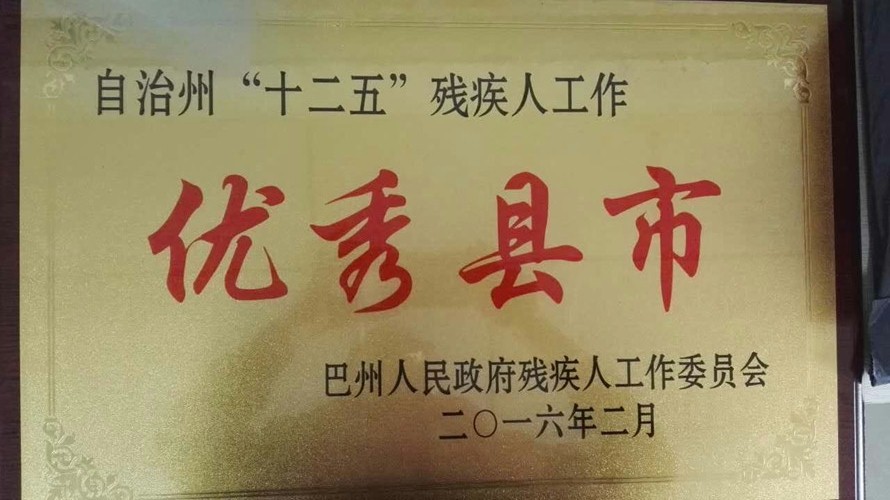 自治州“十二五”残疾人工作
优秀县市
巴州人民政府残疾人工作委员会
二〇一六年二月